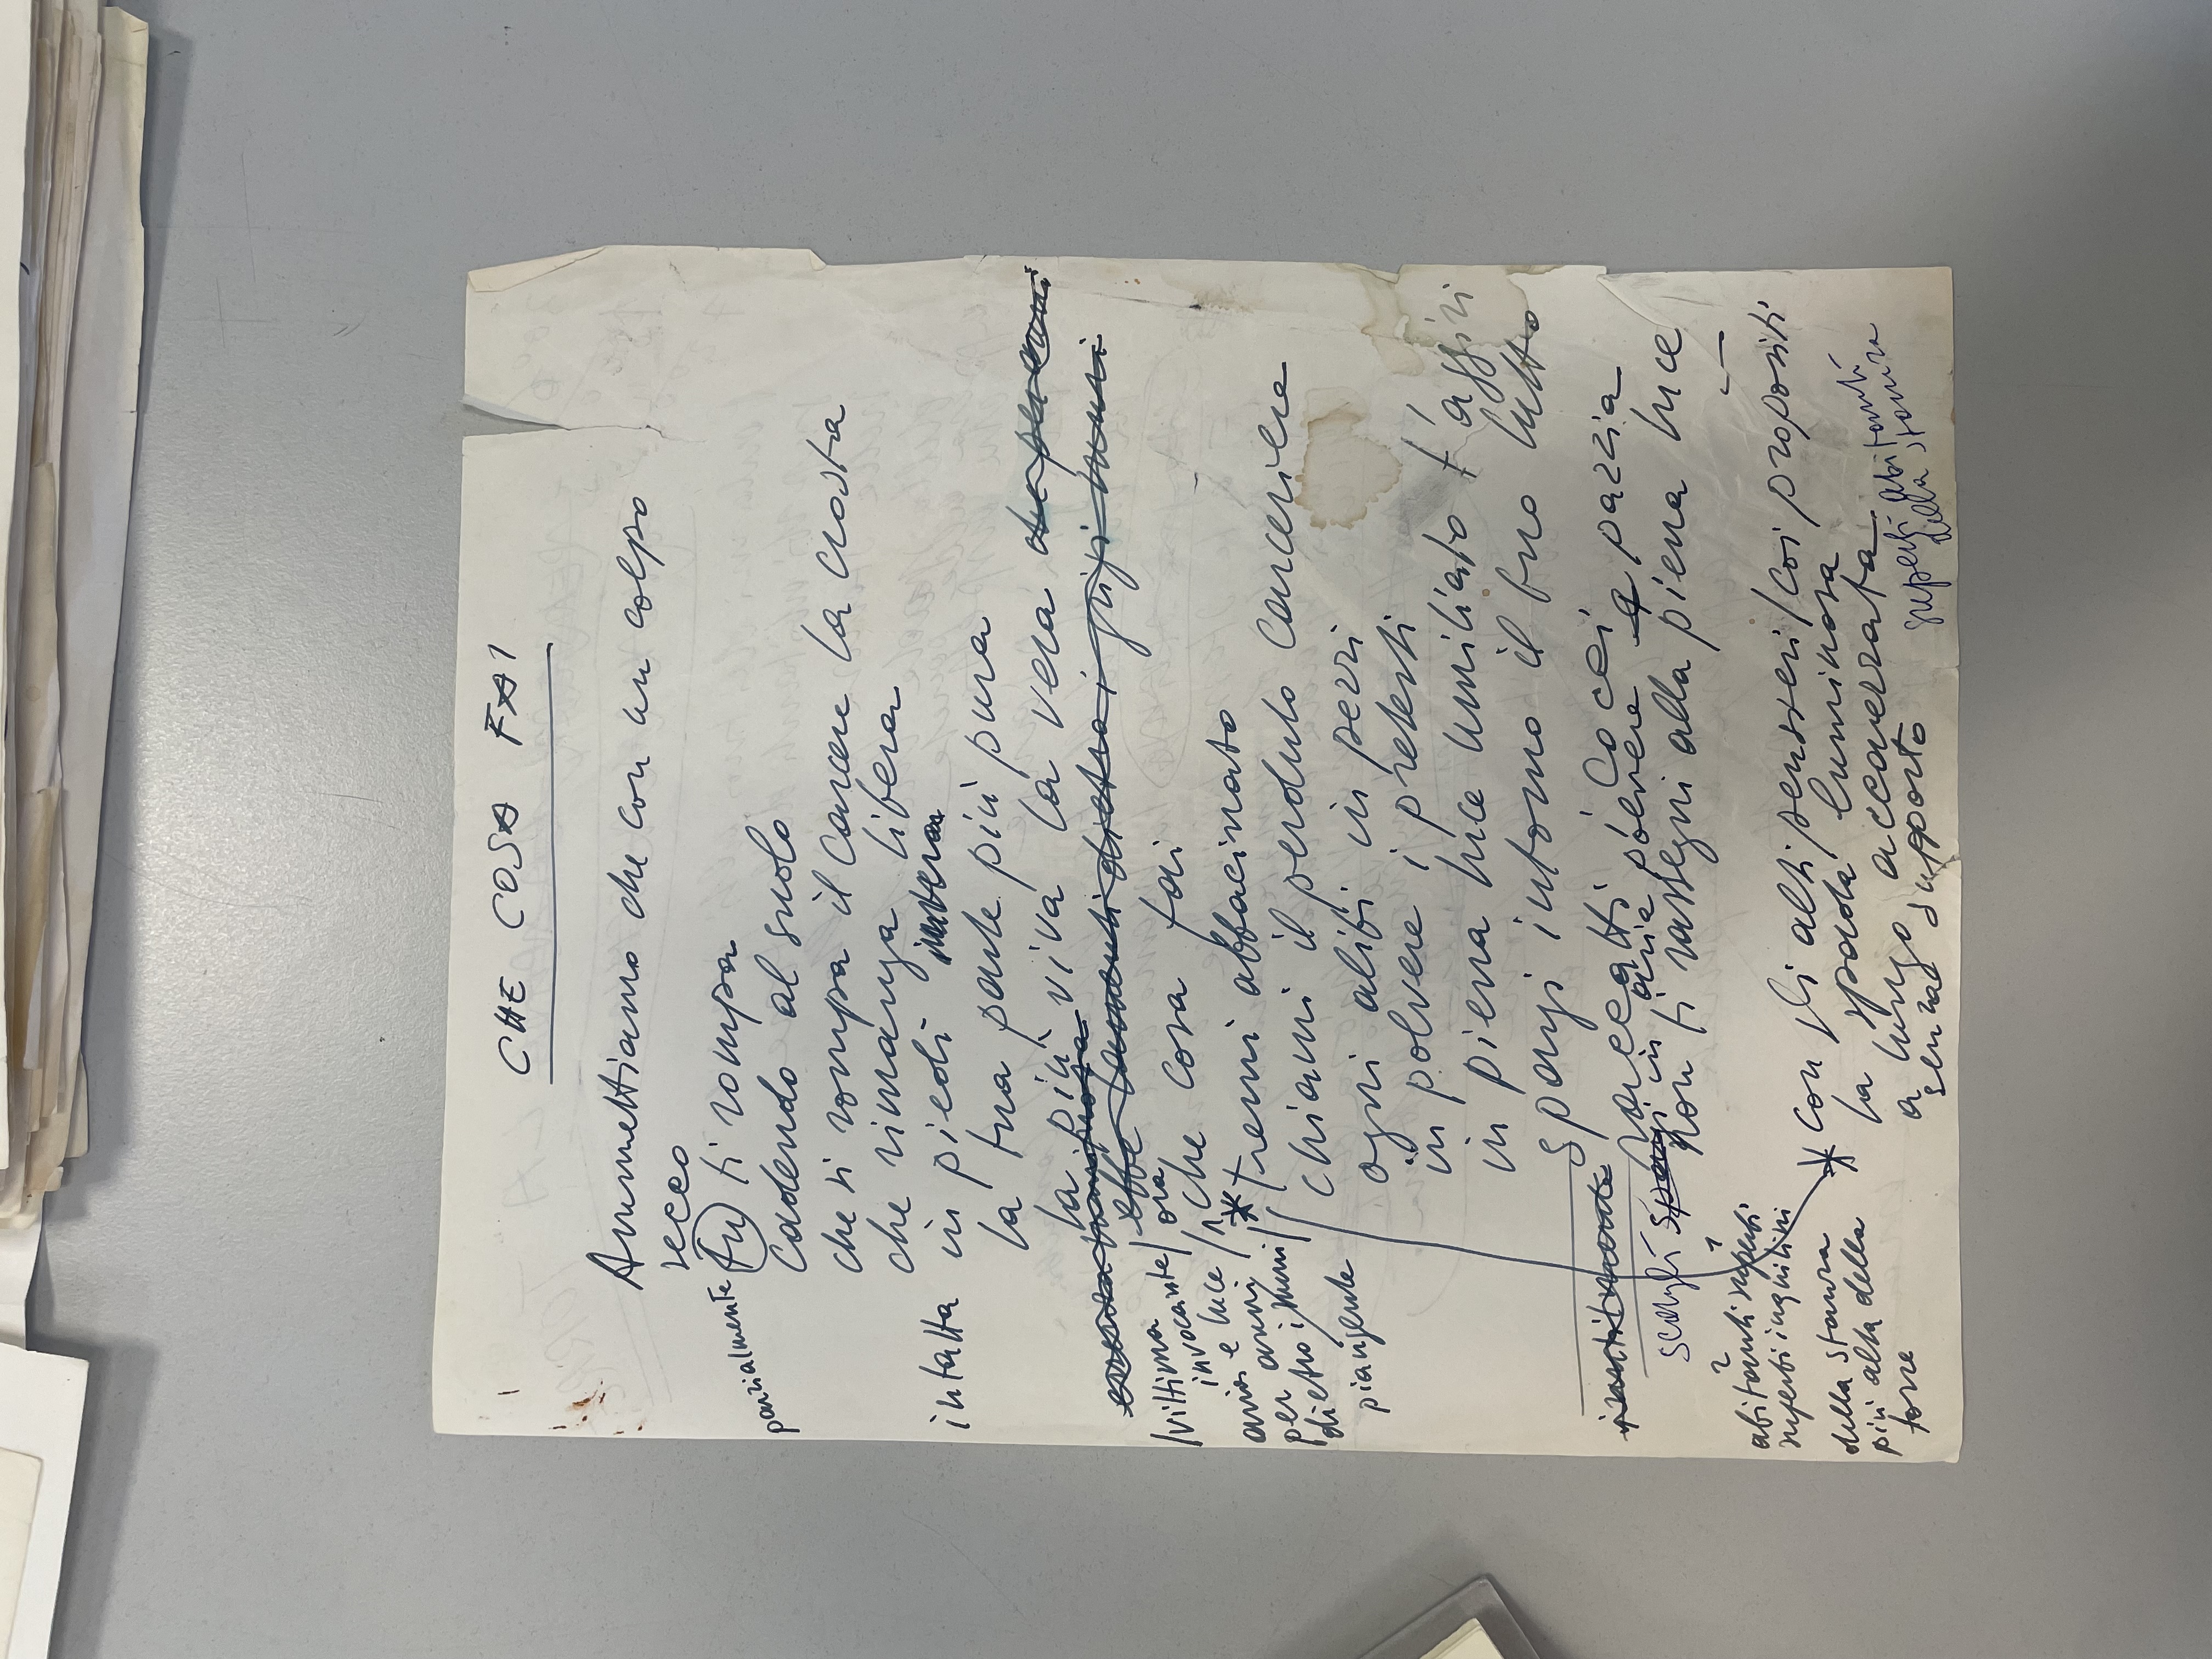 CHE COSA FAI
Ammettiamo che con un colpo
secco
parzialmente
tu ti rompa
cadendo al suolo
che si rompa il carcere la crosta
che rimanga libera
intatta in piedi
la tua parte più pura
la più viva la vera
dietro i grigi muri
/vittima ora/ che cosa fai
invocante
aria e luce /
per anni
dietro i muri/
piangente
* tremi abbacinato
chiami il perduto carceriere
ogni alibi in pezzi
in polvere i pretesti
in piena luce umiliato t'aggiri
spargi intorno il tuo lutto
spargi i cocci
scegli
in aria polvere e pazzia
non ti rassegni alla piena luce
abitanti superbi
superbi inquilini
della stanza
più alta della
torre
* con gli alti pensieri/coi propositi
la spada luminosa
a lungo accarezzata
senza supporto
superbi abitanti
della stanza